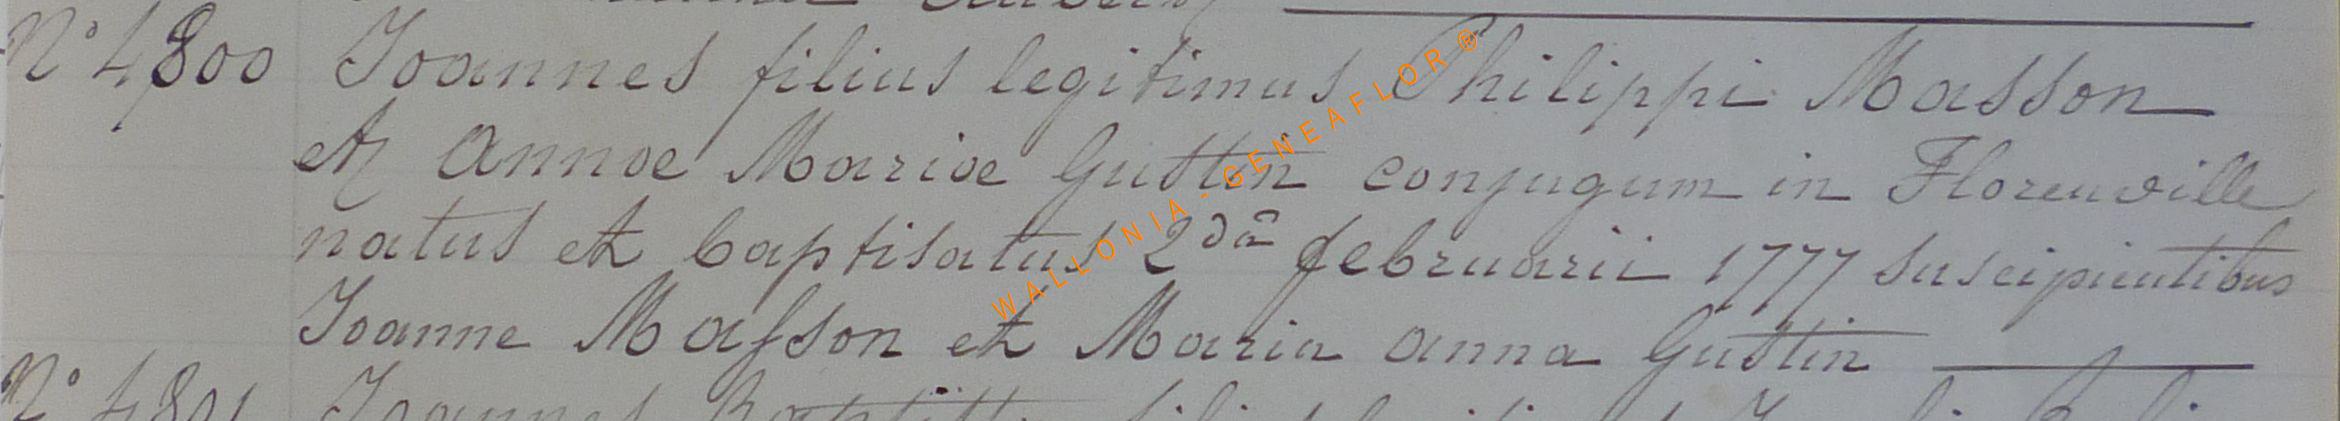 N° 4800 Joannes filius legitimus Philippi Masson
et Annae Mariae Gustin conjugum in Florenville
natus et baptisatus 2dâ februarii 1777 suscipientibus
Joanne Masson et Maria anna Gustin
N° 4801 Joannes Baptista filius
WALLONIA - GENEAFLOR ®